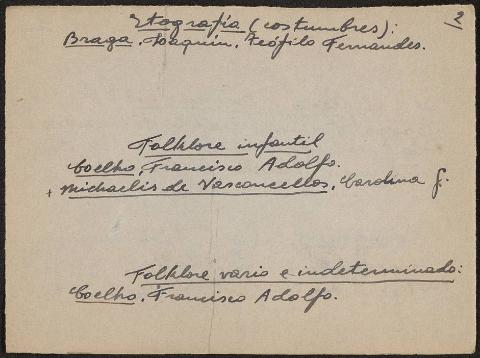 2
Etografía (costumbres):
Braga, Joaquín, Teófilo Fernandes.
Folklore infantil
Coelho, Francisco Adolfo.
+ Michaelis de Vasconcellos, Carolina G.
Folklore vario e indeterminado:
Coelho, Francisco Adolfo.